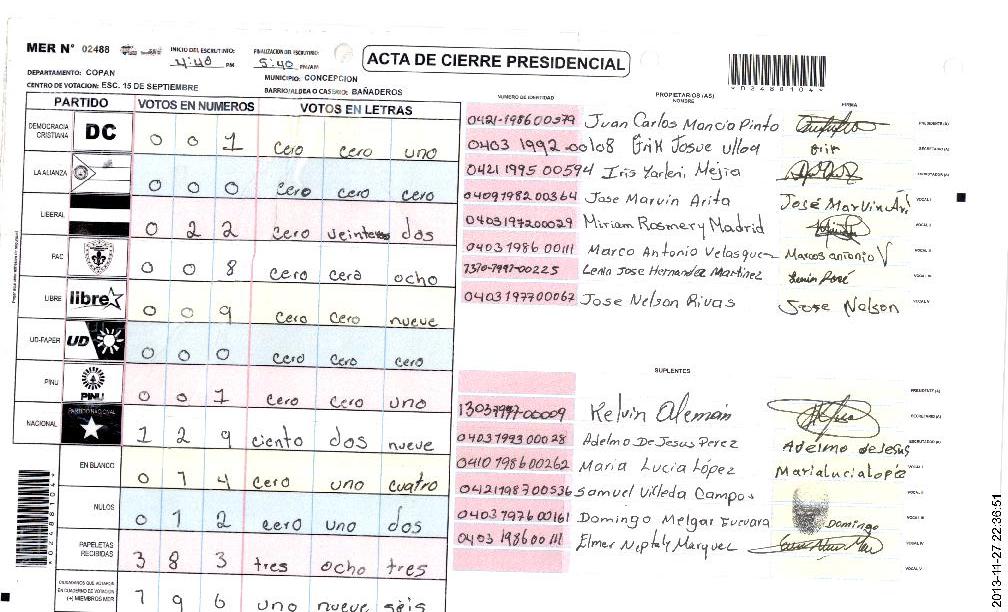 MER N° 02488
INICIO DEL ESCRUTINIO: 4:40 PM
FINALIZACION DEL ESCRUTINIO: 5:40 PM/AM
ACTA DE CIERRE PRESIDENCIAL
*02488104*
DEPARTAMENTO: COPAN
MUNICIPIO: CONCEPCION
CENTRO DE VOTACION: ESC. 15 DE SEPTIEMBRE
BARRIO/ALDEA O CASERIO: BAÑADEROS
PARTIDO VOTOS EN NUMEROS VOTOS EN LETRAS
DEMOCRACIA CRISTIANA DC 0 0 1 cero cero uno
LA ALIANZA 0 0 0 cero cero cero
LIBERAL 0 2 2 cero dos
PAC 0 0 8 cero cero ocho
LIBRE libre 0 0 9 cero cero nueve
UD-FAPER UD 0 0 0 cero cero cero
PINU PINU 0 0 1 cero cero uno
NACIONAL PARTIDO NACIONAL 1 2 9 ciento dos nueve
EN BLANCO 0 1 4 cero uno cuatro
NULOS 0 1 2 cero uno dos
PAPELETAS RECIBIDAS 3 8 3 tres ocho tres
CIUDADANOS QUE VOTARON EN CUADERNO DE VOTACION (+) MIEMBROS MER 1 9 6 uno nueve seis
NUMERO DE IDENTIDAD PROPIETARIOS (AS) NOMBRE FIRMA
0421-198600579 Juan Carlos Mancia Pinto PRESIDENTE (A)
0403 1992-00108 Erik Josue Ulloa Erik SECRETARIO (A)
0421 1995 00594 Iris Yarleni Mejia ESCRUTADOR (A)
0409198200364 Jose Marvin Arita José Marvin Ari VOCAL I
0403197200029 Miriam Rosmery Madrid VOCAL II
0403 1986 00111 Marco Antonio Velasquez Marcos antonio V VOCAL III
Jose Hernandez Martinez VOCAL IV
0403197700067 Jose Nelson Rivas Jose Nelson VOCAL V
SUPLENTES
PRESIDENTE (A)
Kelvin Alemán SECRETARIO (A)
0403199300028 Adelmo De Jesus Perez Adelmo de Jesus ESCRUTADOR (A)
0410198600262 Maria Lucia López Maria Lucia Lope VOCAL I
0421198700536 Samuel Villeda Campos VOCAL II
0403197600161 Domingo Melgar Guevara Domingo VOCAL III
0403 198600111 Elmer Niptaly Marquez VOCAL IV
VOCAL V
*02488104*
2013-11-27 22:36:51